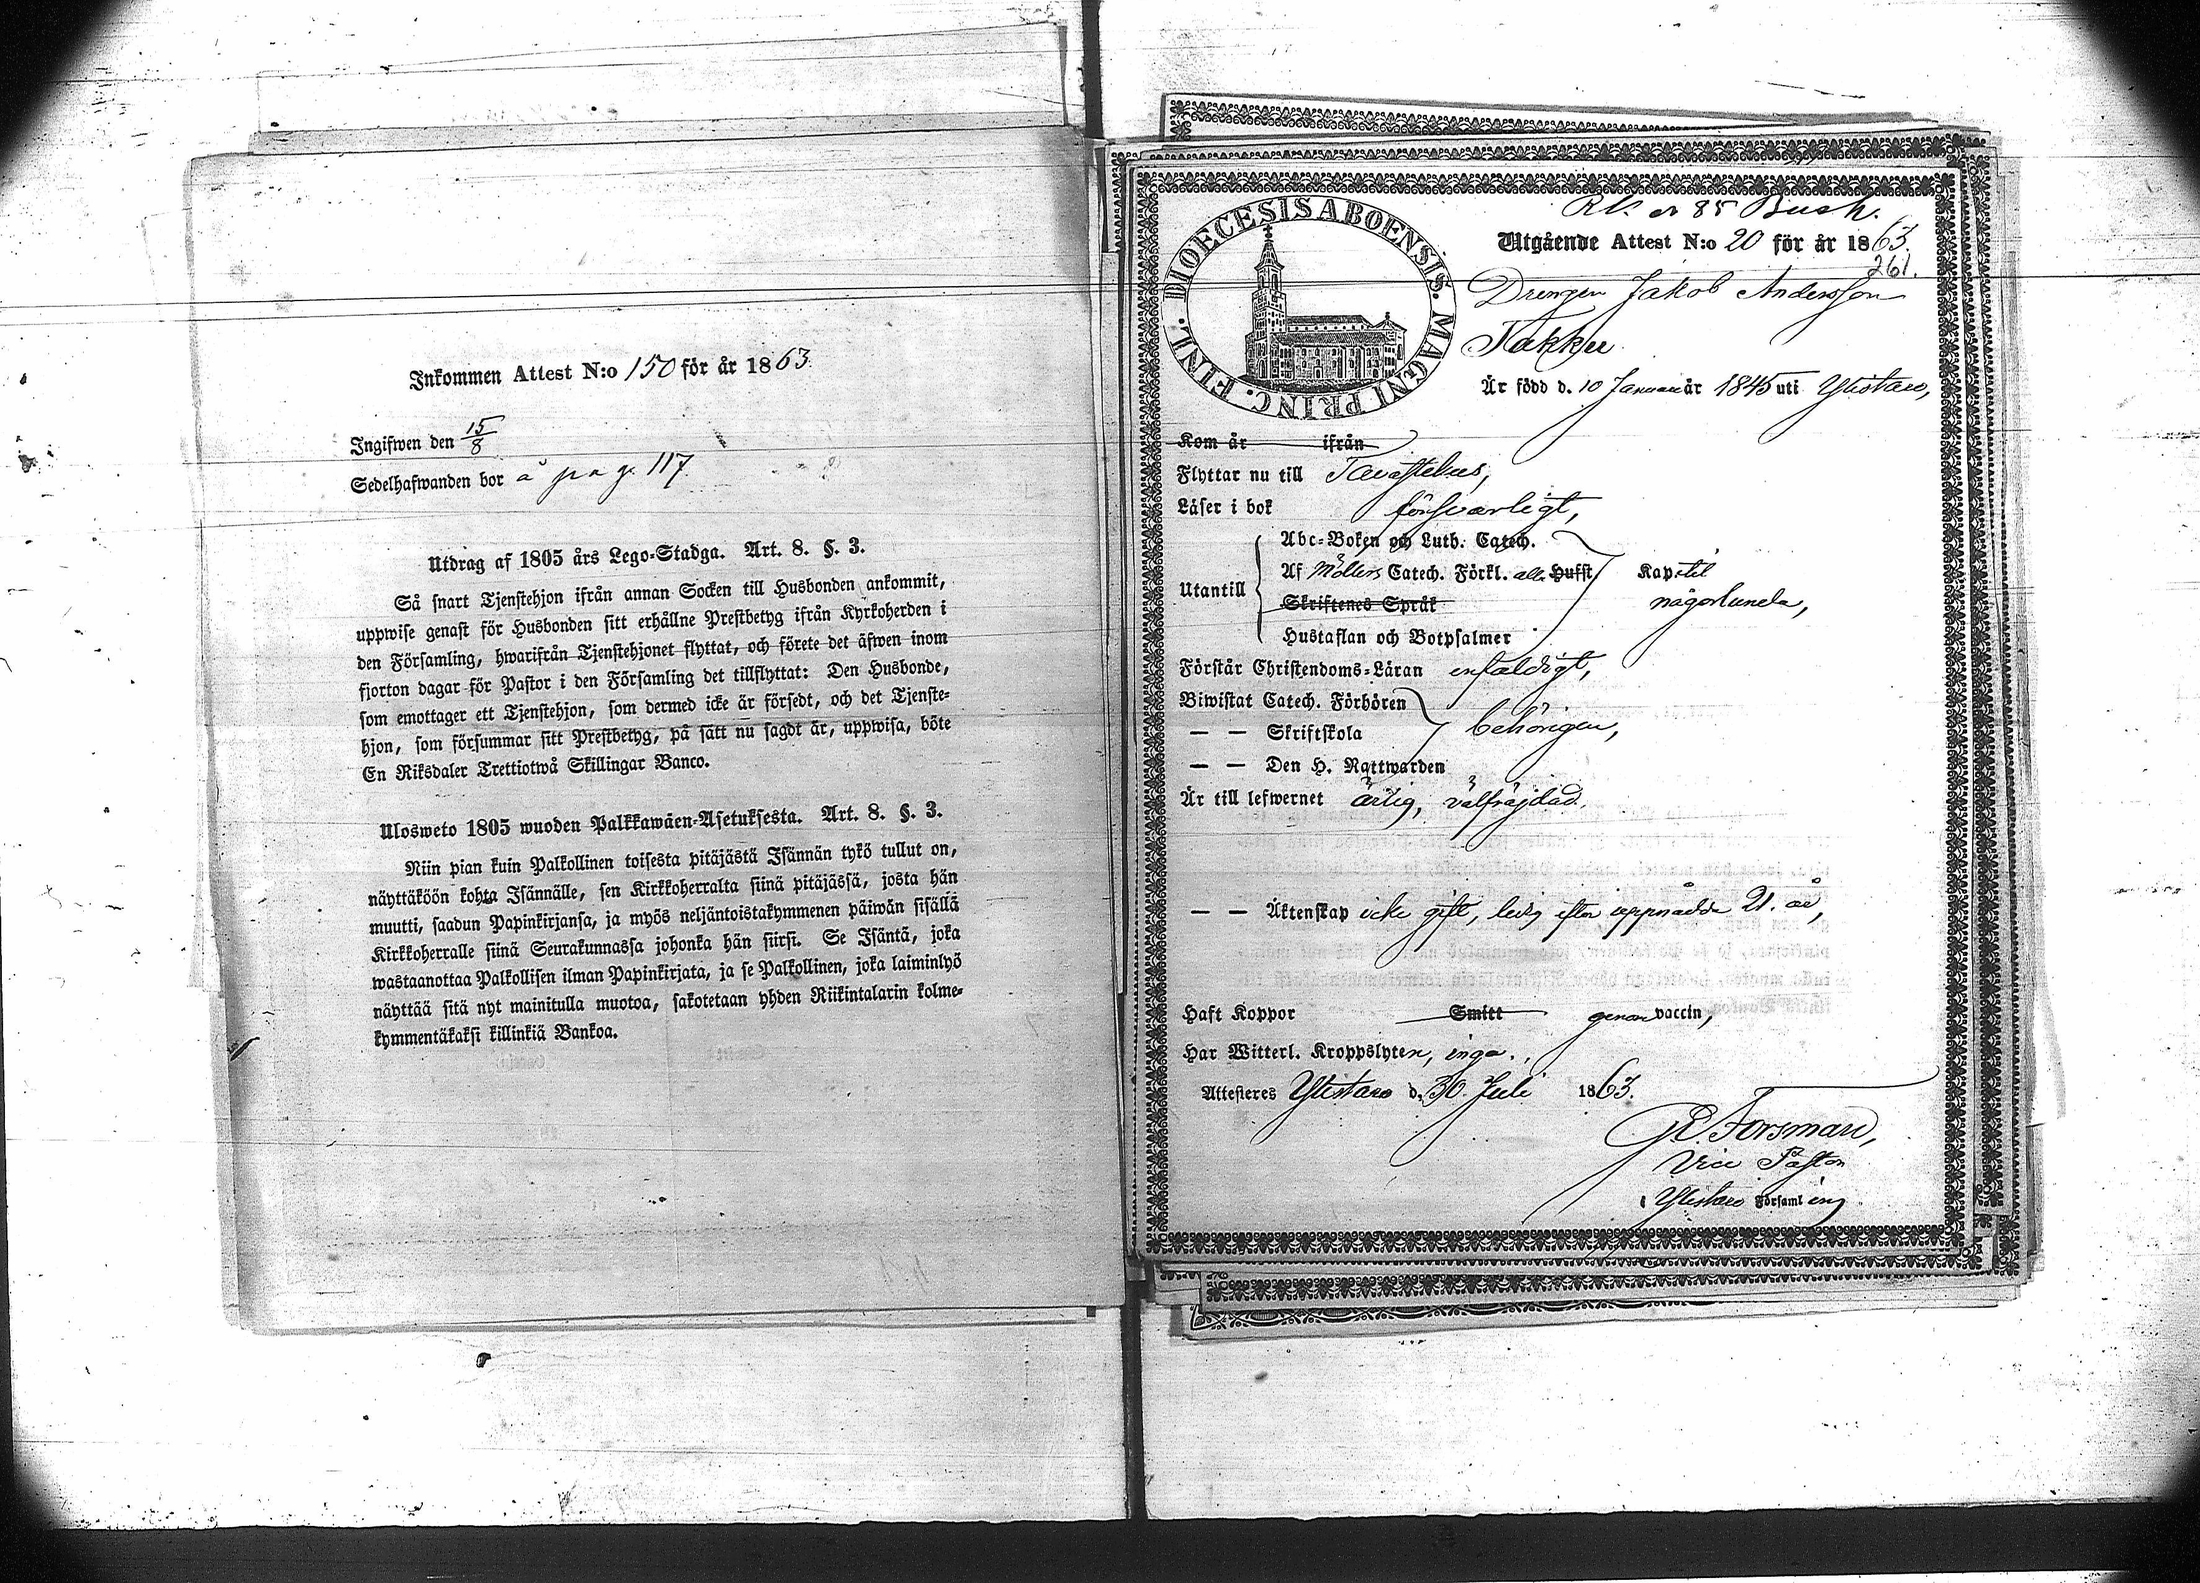 Inkommen Attest N:o 150 för år 1863.
Ingifwen den 15/8
Sedelhafwanden bor å pag. 117.
Utdrag af 1805 års Lego-Stadga. Art. 8. §. 3.
Så snart Tjenstehjon ifrån annan Socken till Husbonden ankommit,
uppwise genast för Husbonden sitt erhållne Prestbetyg ifrån Kyrkoherden i
den Församling, hwarifrån Tjenstehjonet flyttat, och förete det äfwen inom
fjorton dagar för Pastor i den Församling det tillflyttat: Den Husbonde,
som emottager ett Tjenstehjon, som dermed icke är försedt, och det Tjenste-
hjon, som försummar sitt Prestbetyg, på sätt nu sagdt är, uppwisa, böte
En Riksdaler Trettiotwå Skillingar Banco.
Ulosweto 1805 wuoden Palkkawäen-Asetuksesta. Art. 8. §. 3.
Niin pian kuin Palkollinen toisesta pitäjästä Isännän tykö tullut on,
näyttäköön kohta Isännälle, sen Kirkkoherralta siinä pitäjässä, josta hän
muutti, saadun Papinkirjansa, ja myös neljäntoistakymmenen päiwän sisällä
Kirkkoherralle siinä Seurakunnassa johonka hän siirsi. Se Isäntä, joka
wastaanottaa Palkollisen ilman Papinkirjata, ja se Palkollinen, joka laiminlyö
näyttää sitä nyt mainitulla muotoa, sakotetaan yhden Riikintalarin kolme-
kymmentäkaksi killinkiä Bankoa.
DIOECESIS ABOENSIS. MAGNI PRINC. FINL.
85
Utgående Attest N:o 20 för år 1863.
261.
Drengen Jakob Andersson
Takku
Är född d. 10 Januari år 1845 uti Ylistaro,
Kom år ifrån
Flyttar nu till Tavastehus,
Läser i bok försvarligt,
Abc-Boken och Luth. Catech.
Utantill Af Möllers Catech. Förkl. alla Hufst Kapitel
Skriftenes Språk någorlunda,
Hustaflan och Botpsalmer
Förstår Christendoms-Läran enfaldigt,
Biwistat Catech. Förhören
— — Skriftskola behörigen,
— — Den H. Nattwarden
Är till lefwernet ärlig, välfräjdad.
— — Äktenskap icke gift, ledig efter uppnådde 21. år,
Haft Koppor Smitt genom vaccin,
Har Witterl. Kroppslyten, inga.
Attesteres Ylistaro d. 30. Juli 1863.
Forsman,
Vice Pastor
i Ylistaro Församling